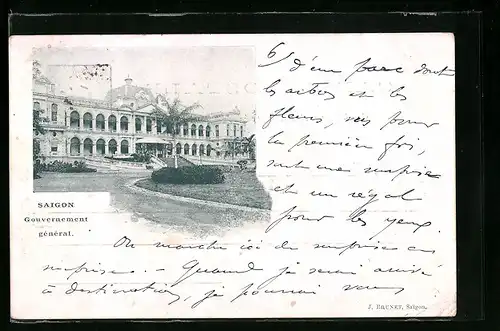 6
d'un parc dont
les arbres et les
fleurs, vus pour
la première fois,
sont une surprise
et un régal
pour les yeux.
On marche ici de surprise en
surprise. - Quand je serai arrivé
à destination, je pourrai vous
SAIGON
Gouvernement
général.
J. BRUNET, Saigon.